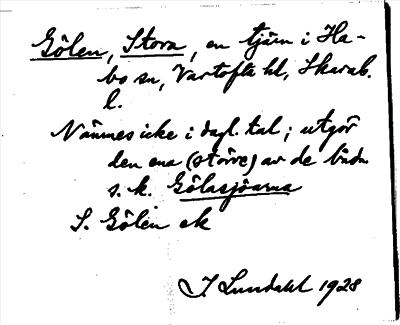 Gölen, Stora, en tjärn i Ha-
bo sn, Vartofta hd, Skarab.
l.
Nämnes icke i dagl. tal; utgör
den ena (större) av de båda
s. k. Gölasjöarna
S. Gölen ek
I Lundahl 1928